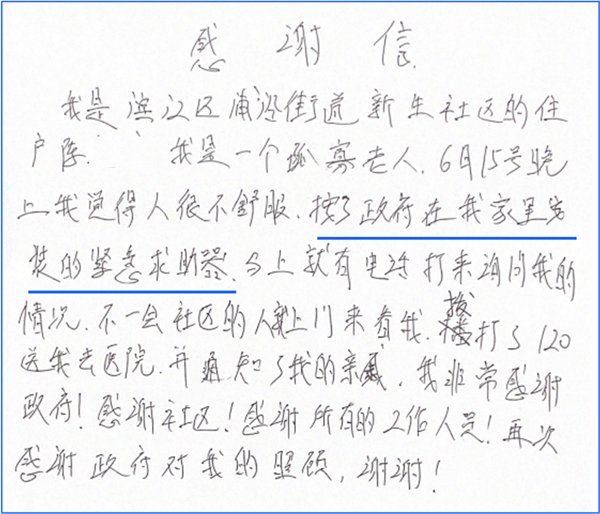 感谢信
我是滨江区浦沿街道新生社区的住
户陈 我是一个孤寡老人.6月15号晚
上我觉得人很不舒服.按了政府在我家里安
装的紧急求助器.马上就有电话打来询问我的
情况.不一会社区的人就上门来看我.拨打了120
送我去医院.并通知了我的亲戚.我非常感谢
政府!感谢社区!感谢所有的工作人员!再次
感谢政府对我的照顾,谢谢!